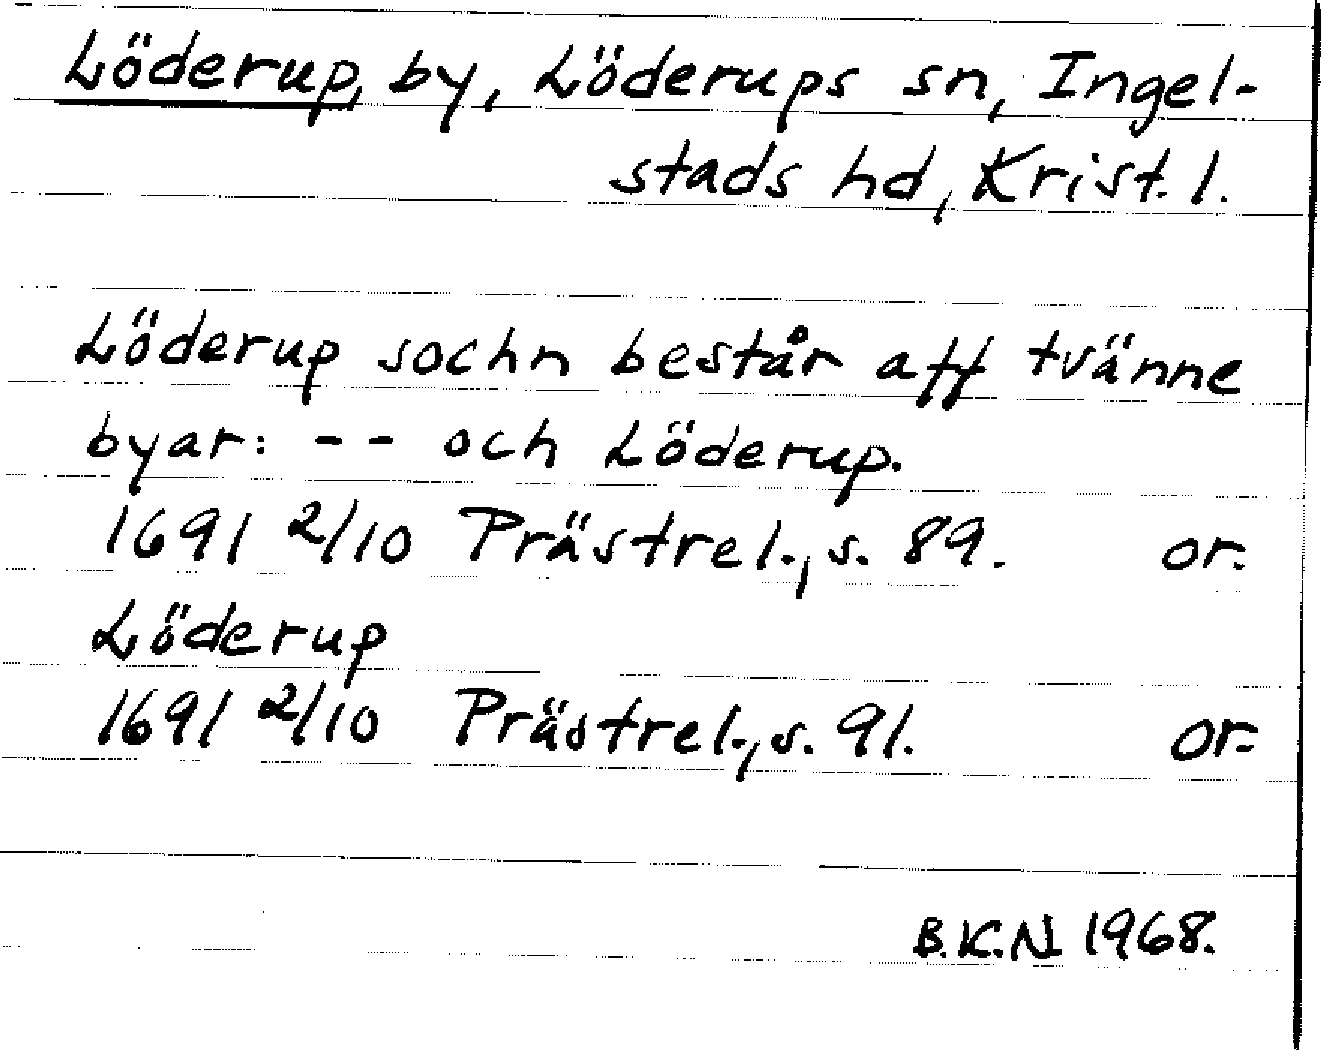 Löderup, by, Löderups sn, Ingel-
stads hd, Krist. l.
Löderup sochn består aff tvänne
byar: -- och Löderup.
1691 2/10 Prästrel., s. 89. or.
Löderup
1691 2/10 Prästrel., s. 91. or.
B.K.N 1968.